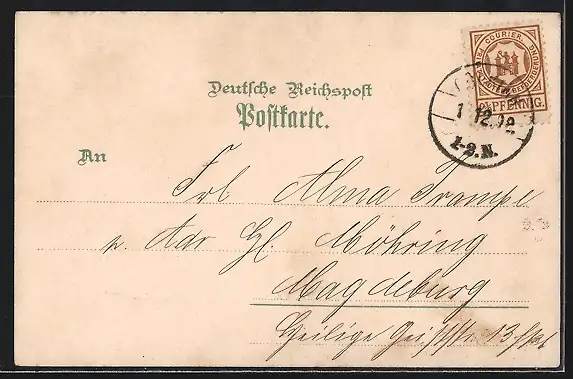 COURIER
PFENNIG.
Deutsche Reichspost
Postkarte.
1 12. 92.
1-2.N.
An
Frl Alma Trampe
p. Adr Hl. Möhring
Magdeburg
Heilige Geiststr. 13